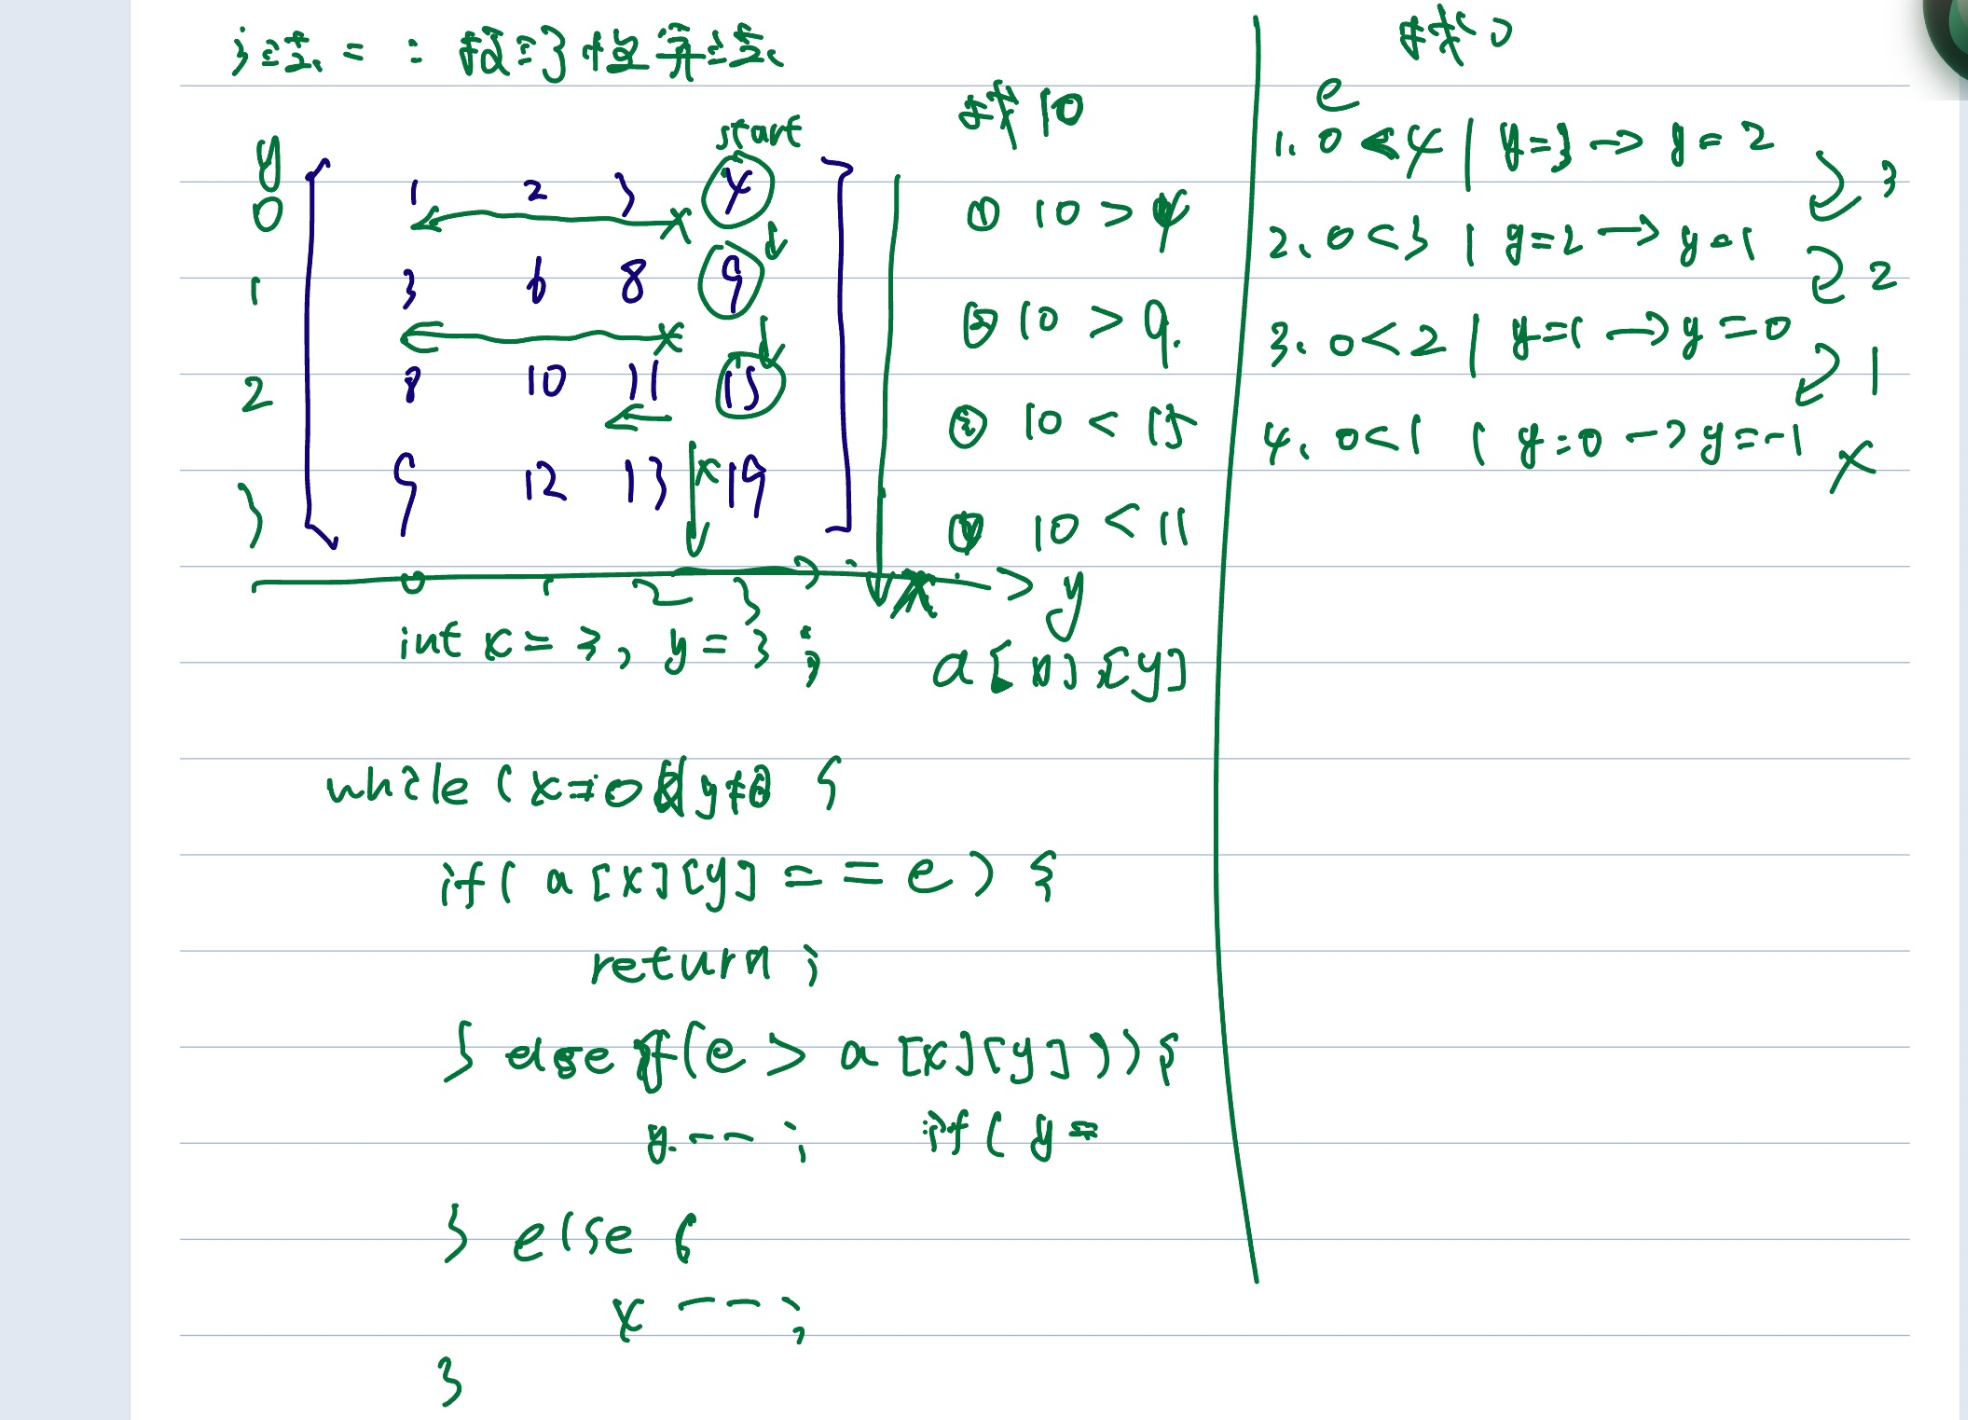 方法二：数学性算法
start
y
0 1 2 3 4
1 3 6 8 9
2 8 10 11 15
3 9 12 13 19
0 1 2 3 y
int x = 3, y = 3;
a[x][y]
找 10
① 10 > 4
② 10 > 9.
③ 10 < 15
④ 10 < 11
while (x
if( a[x][y] == e) {
return;
} else if(e > a[x][y])){
y--; if( y =
} else {
x --;
}
找 0
e
1. 0 < 4 | y=3 → y = 2
3
2. 0<3 | y=2 → y=1
2
3. 0<2 | y=1 → y=0
1
4. 0<1 | y=0 → y=-1 x